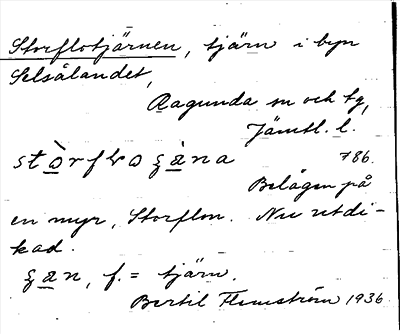 Storflotjärnen, tjärn i byn
Selsålandet,
Ragunda sn och tg,
Jämtl. l.
786.
Belägen på
en myr, Storflon. Nu utdi-
kad.
f. = tjärn.
Bertil Flemström 1936